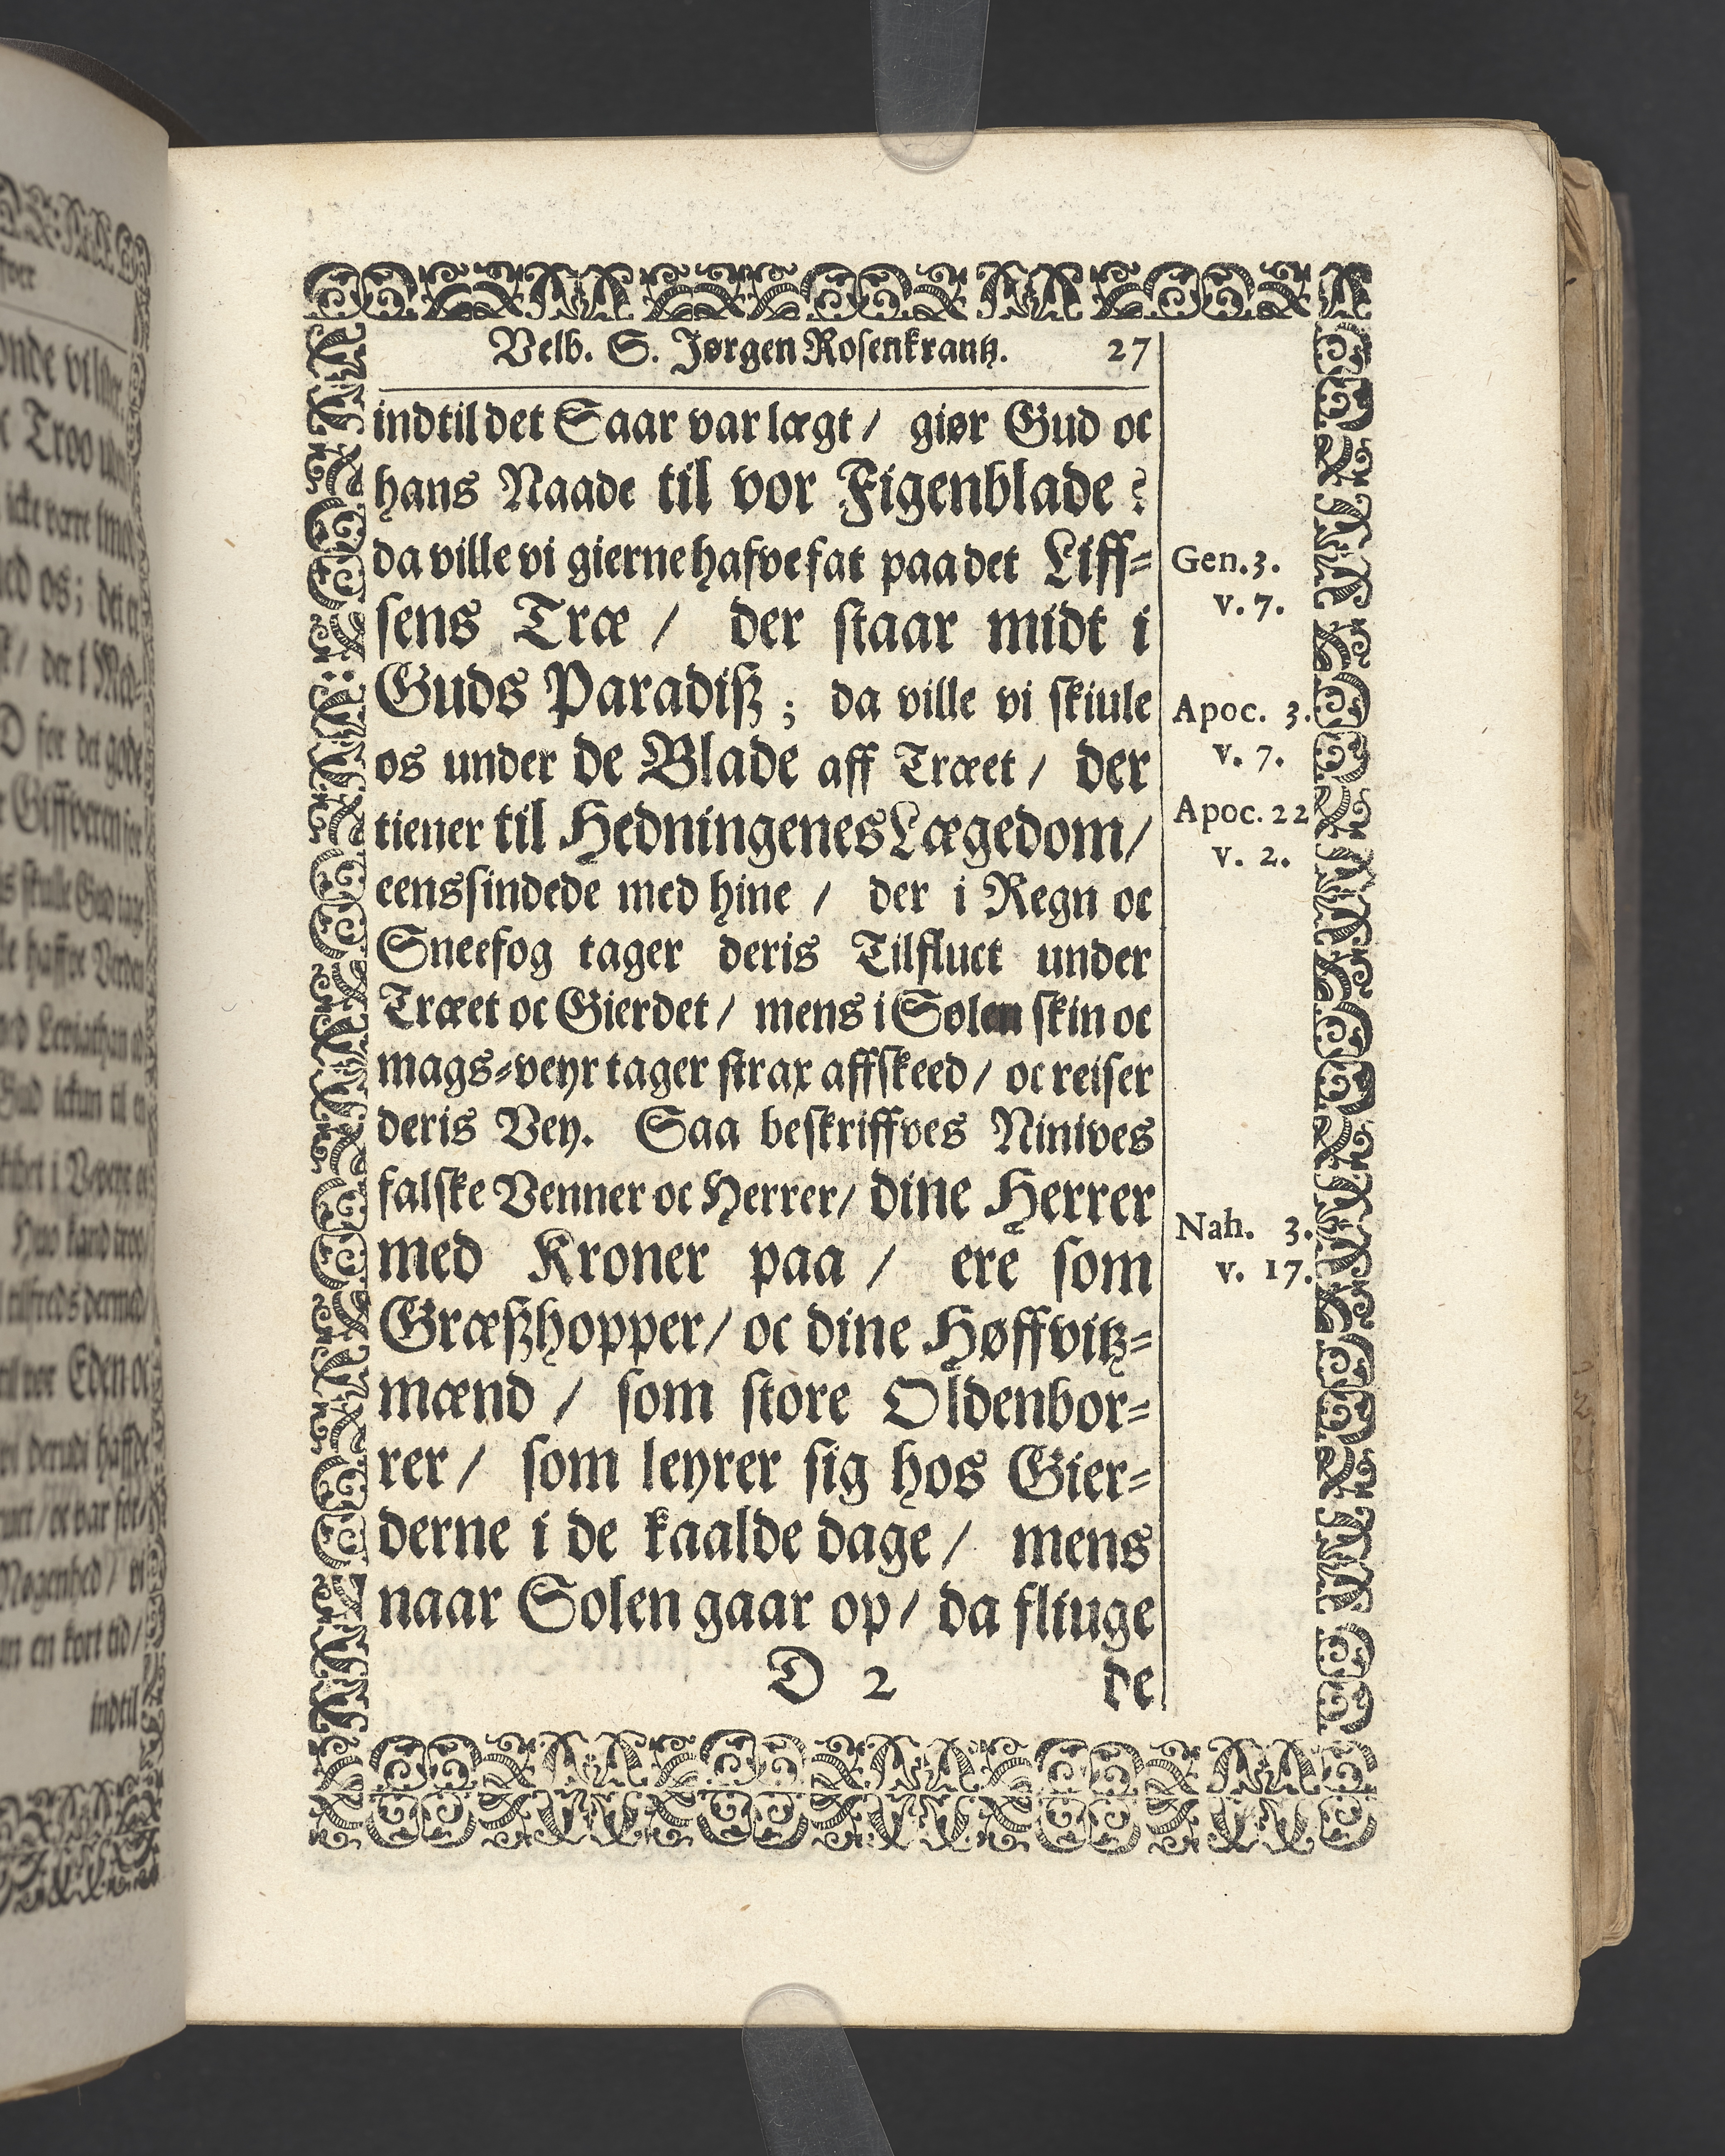 Velb. S. Jørgen Rosenkrantz. 27
indtil det Saar var lægt / giør Gud oc
hans Naade til vor Figenblade ?
da ville vi gierne hafve fat paa det Liff-
sens Træ / der staar midt i
Guds Paradiß ; da ville vi skiule
os under de Blade aff Træet / der
tiener til Hedningenes Lægedom /
eenssindede med hine / der i Regn oc
Sneefog tager deris Tilfluct under
Træet oc Gierdet / mens i Solen skin oc
mags-veyr tager strax affskeed / oc reiser
deris Vey. Saa beskriffves Ninives
falske Venner oc Herrer / dine Herrer
med Kroner paa / ere som
Græßhopper / oc dine Høffvitz-
mænd / som store Oldenbor-
rer / som leyrer sig hos Gier-
derne i de kaalde dage / mens
naar Solen gaar op / da fliuge
D 2 de
Gen. 3.
v. 7.
Apoc. 3.
v. 7.
Apoc. 22
v. 2.
Nah. 3.
v. 17.
indtil